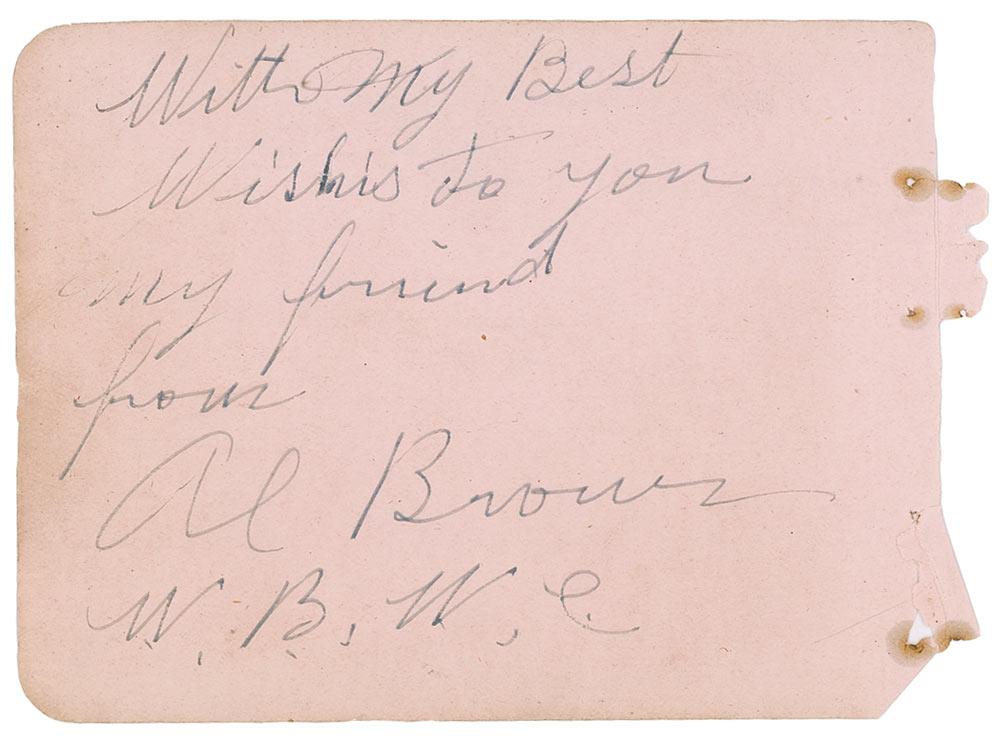 With My Best
Wishis to you
my friend
from
Al Brown
W. B, W, C